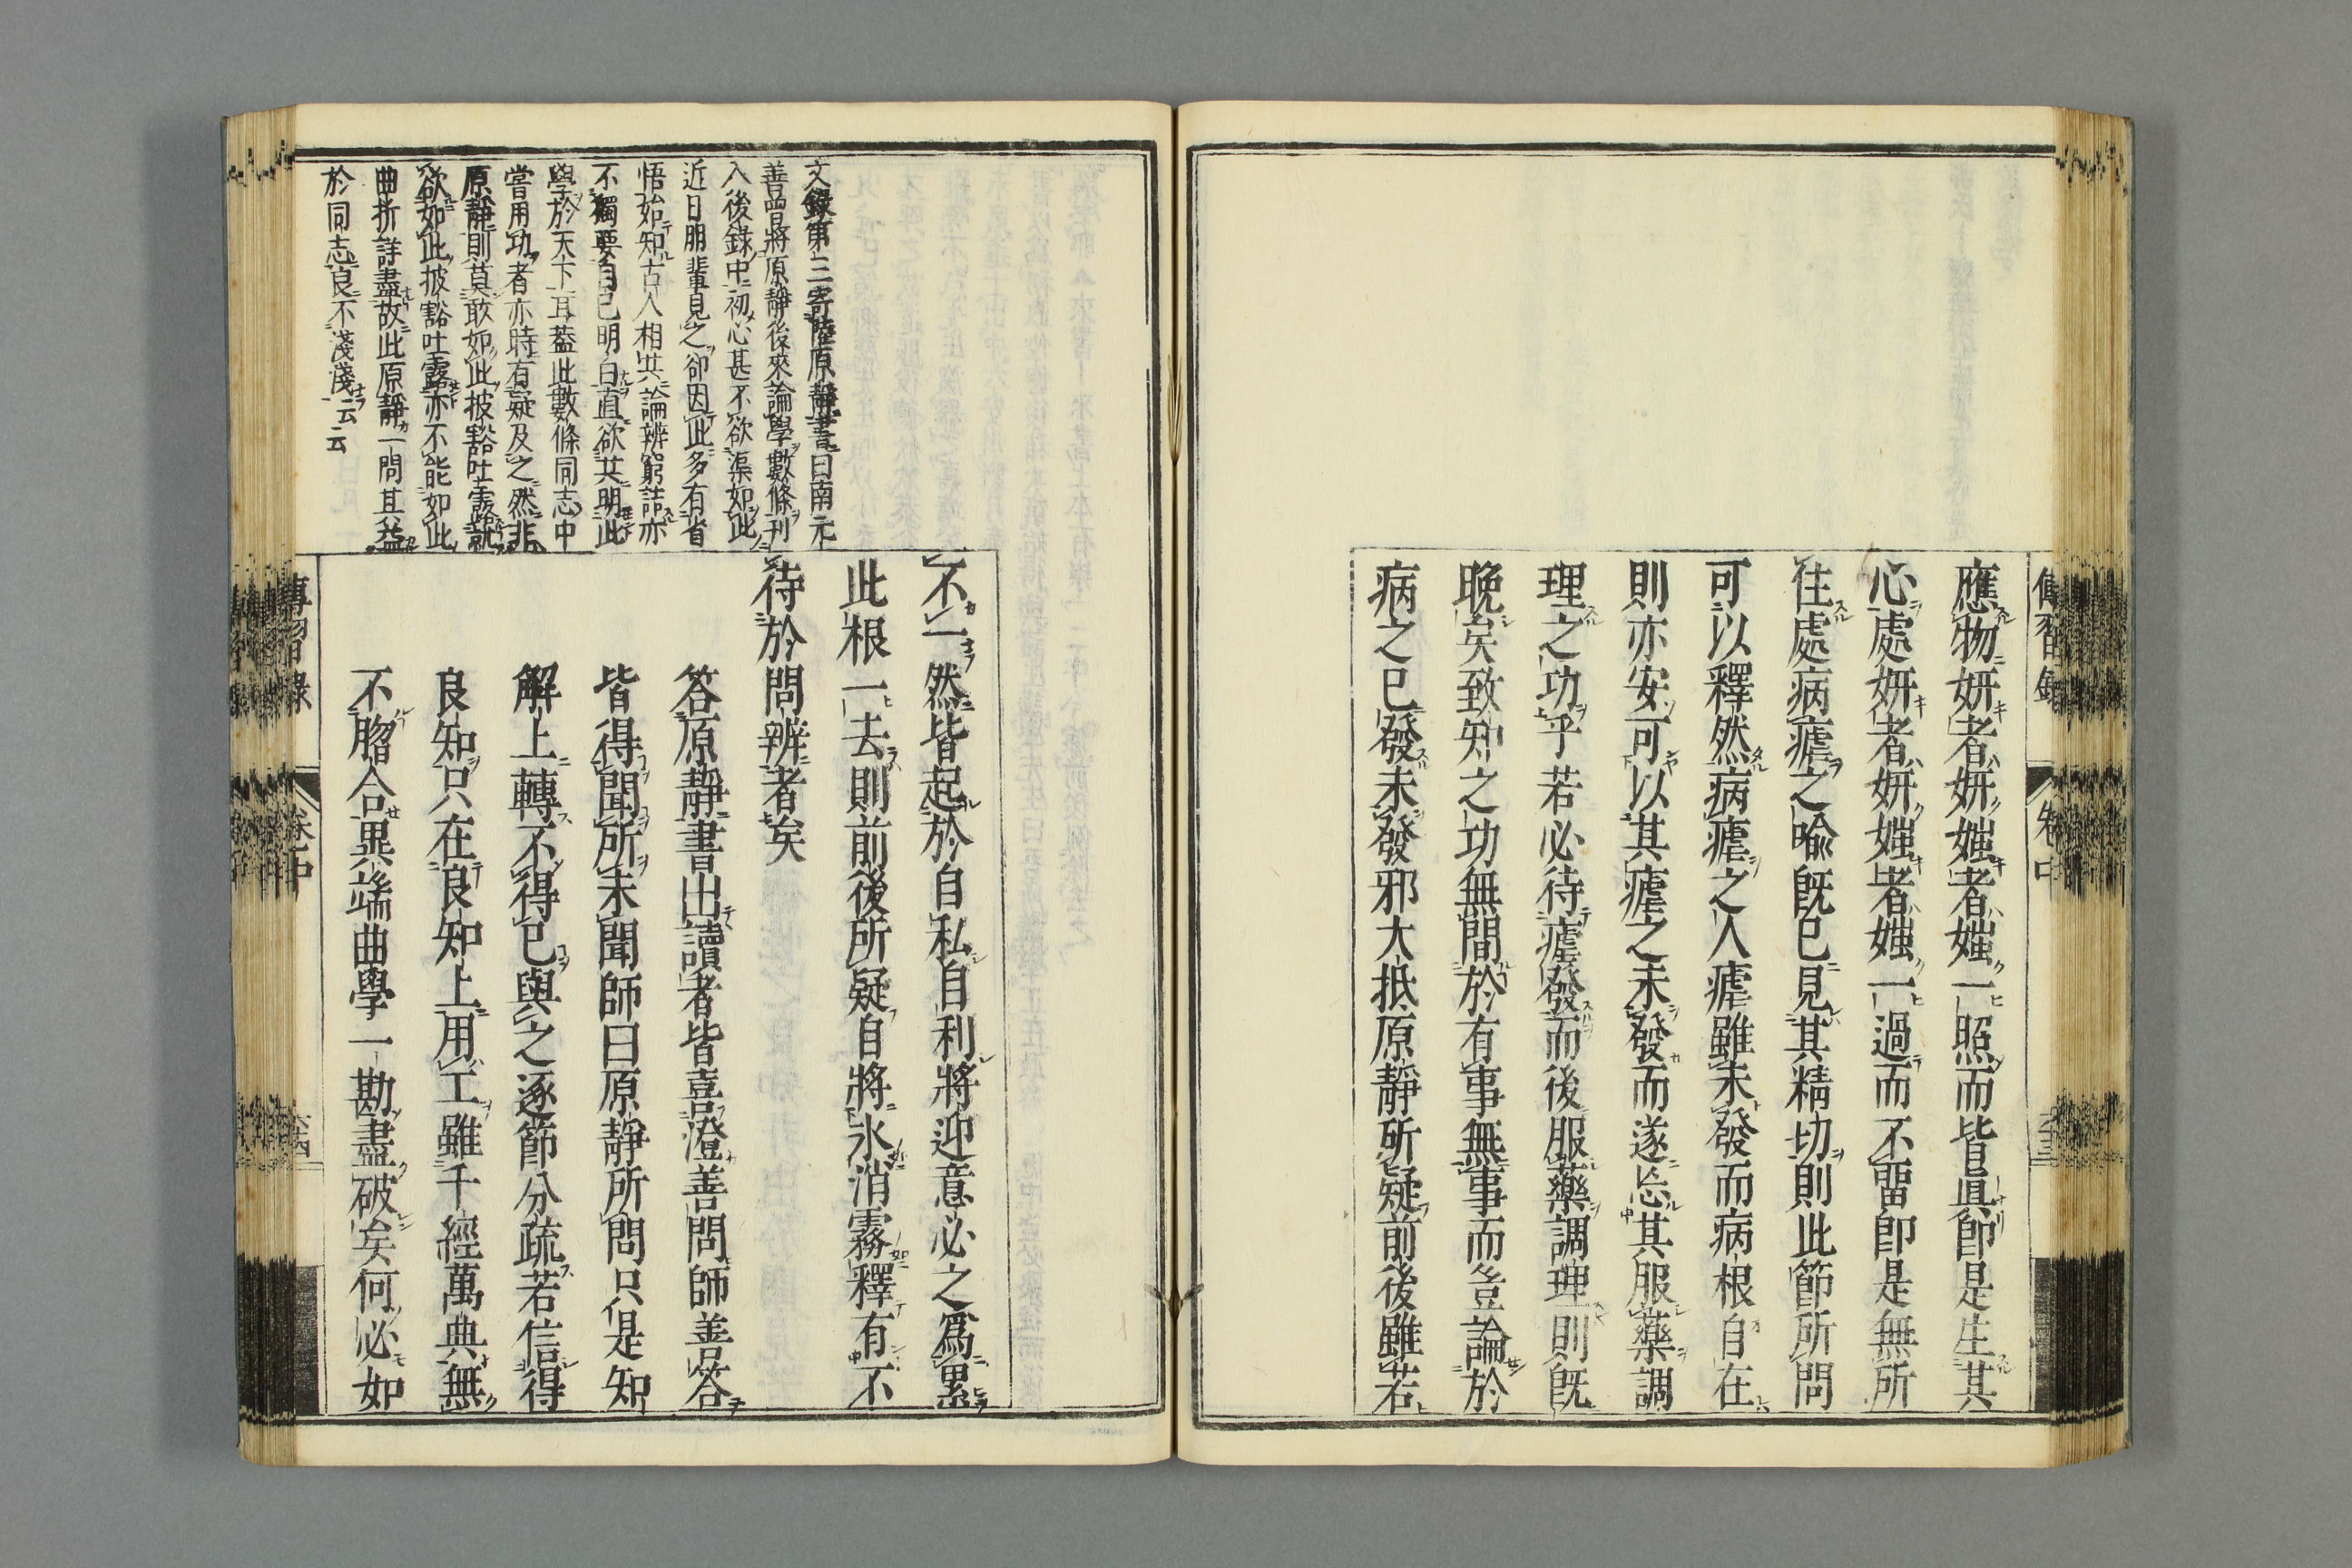 應物妍者妍媸者媸一照而皆眞卽是生其
心處妍者妍媸者媸一過而不畱卽是無所
住處病瘧之喩旣已見其精切則此節所問
可以釋然病瘧之人瘧雖未發而病根自在
則亦安可以其瘧之未發而遂忘其服藥調
理之功乎若必待瘧發而後服藥調理則旣
晩矣致知之功無間於有事無事而豈論於
病之已發未發邪大抵原靜所疑前後雖若
文錄第三寄陸原靜書曰南元
善曾將原靜後來論學數條刊
入後錄中初心甚不欲渠如此
近日朋輩見之卻因此多有省
悟始知古人相共論辨窮詰亦
不獨要自己明白直欲共明此
學於天下耳蓋此數條同志中
嘗用功者亦時有疑及之然非
原靜則莫敢如此披豁吐露就
欲如此披豁吐露亦不能如此
曲折詳盡故此原靜一問其益
於同志良不淺淺云云
不一然皆起於自私自利將迎意必之爲累
此根一去則前後所疑自將氷消霧釋有不
待於問辨者矣
答原靜書出讀者皆喜澄善問師善答
皆得聞所未聞師曰原靜所問只是知
解上轉不得已與之逐節分疏若信得
良知只在良知上用工雖千經萬典無
不脗合異端曲學一勘盡破矣何必如
傳習錄
卷中